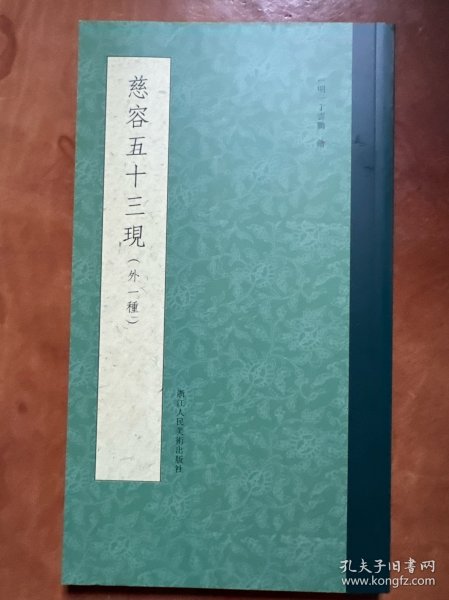 慈容五十三現（外一種）
〔明〕丁雲鵬 繪
浙江人民美術出版社
孔夫子旧书网
www.kongfz.com